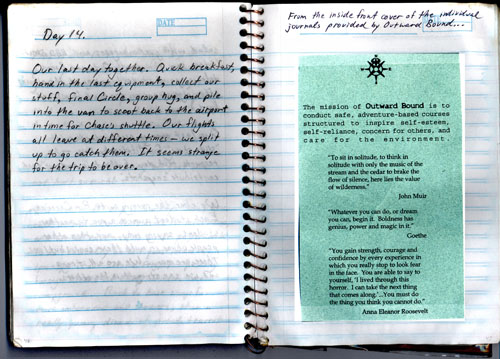 Day 14.
DATE
Our last day together. Quick breakfast,
hand in the last equipment, collect our
stuff, final Circle, group hug, and pile
into the van to scoot back to the airport
in time for Chase's shuttle. Our flights
all leave at different times – we split
up to go catch them. It seems strange
for the trip to be over.
From the inside front cover of the individual
journals provided by Outward Bound...
The mission of Outward Bound is to
conduct safe, adventure-based courses
structured to inspire self-esteem,
self-reliance, concern for others, and
care for the environment.
"To sit in solitude, to think in
solitude with only the music of the
stream and the cedar to brake the
flow of silence, here lies the value
of wilderness."
John Muir
"Whatever you can do, or dream
you can, begin it. Boldness has
genius, power and magic in it."
Goethe
"You gain strength, courage and
confidence by every experience in
which you really stop to look fear
in the face. You are able to say to
yourself, 'I lived through this
horror. I can take the next thing
that comes along.'...You must do
the thing you think you cannot do."
Anna Eleanor Roosevelt